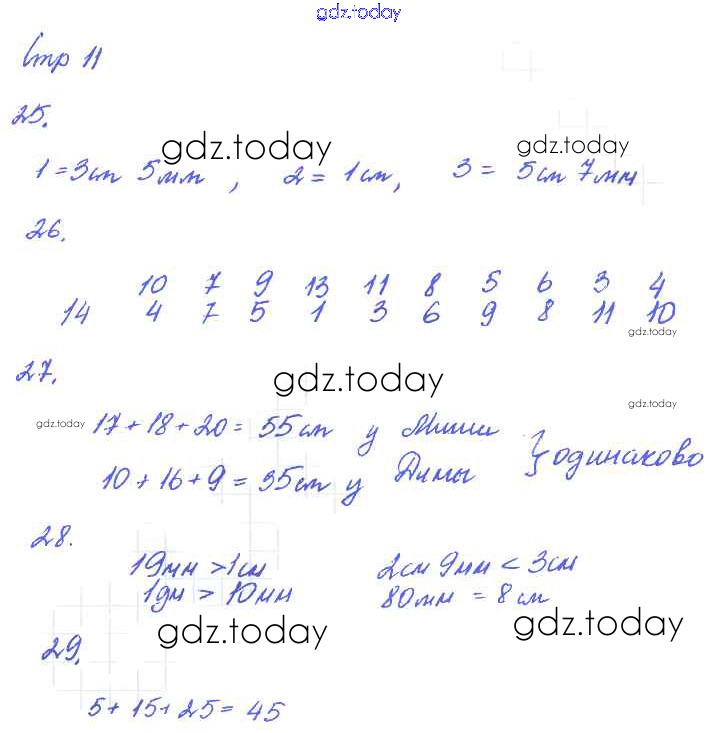 gdz.today
Стр 11
25.
gdz.today gdz.today
1 = 3см 5мм , 2 = 1см, 3 = 5см 7мм
26.
10 7 9 13 11 8 5 6 3 4
14 4 7 5 1 3 6 9 8 11 10
gdz.today
27.
gdz.today
gdz.today
gdz.today 17 + 18 + 20 = 55см у Миши } одинаково
10 + 16 + 9 = 35см у Димы
28.
19мм > 1см 2см 9мм < 3см
1дм > 10мм 80мм = 8см
gdz.today gdz.today
29.
5 + 15 + 25 = 45